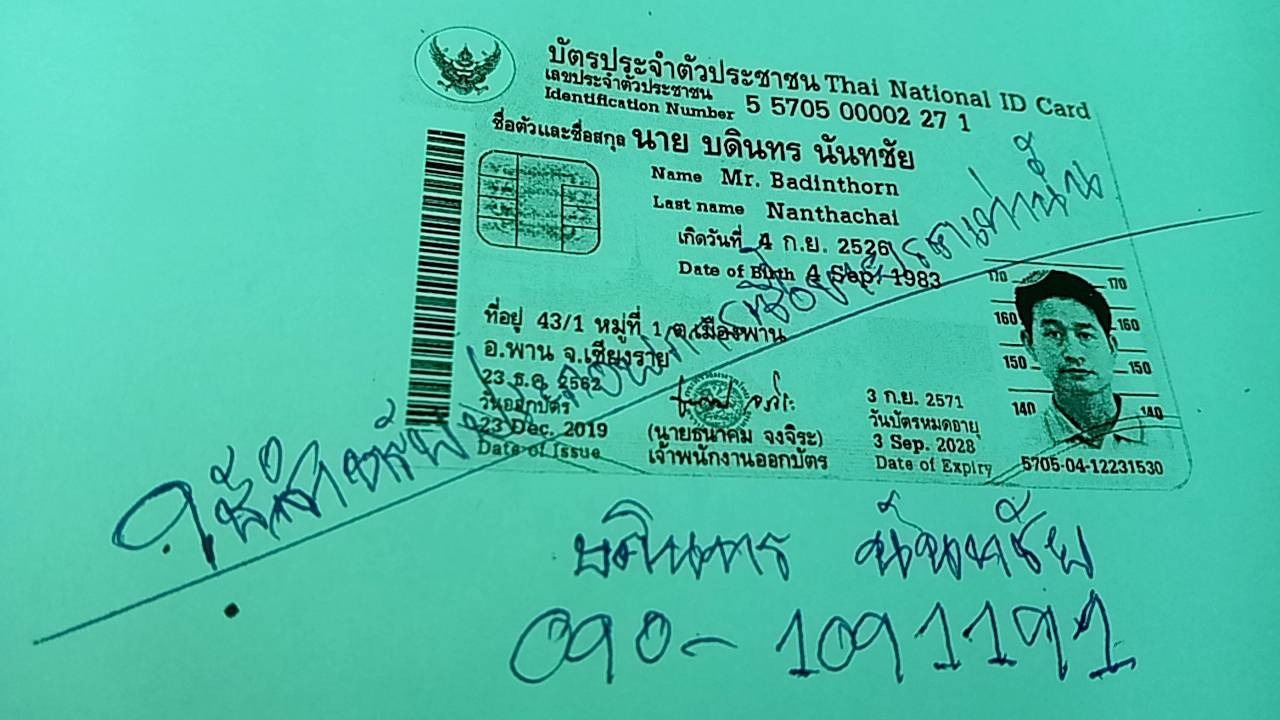 บัตรประจำตัวประชาชน Thai National ID Card
เลขประจำตัวประชาชน
Identification Number 5 5705 00002 27 1
ชื่อตัวและชื่อสกุล นาย บดินทร นันทชัย
Name Mr. Badinthorn
Last name Nanthachai
เกิดวันที่ 4 ก.ย. 2526
Date of Birth 4 Sep. 1983
ที่อยู่ 43/1 หมู่ที่ 1 ต.เมืองพาน
อ.พาน จ.เชียงราย
23 ธ.ค. 2562
วันออกบัตร
23 Dec. 2019
Date of Issue
(นายธนาคม จงจิระ)
เจ้าพนักงานออกบัตร
3 ก.ย. 2571
วันบัตรหมดอายุ
3 Sep. 2028
Date of Expiry
170 170
160 160
150 150
140 140
5705-04-12231530
ใช้สำหรับ เท่านั้น
บดินทร นันทชัย
090-1091191